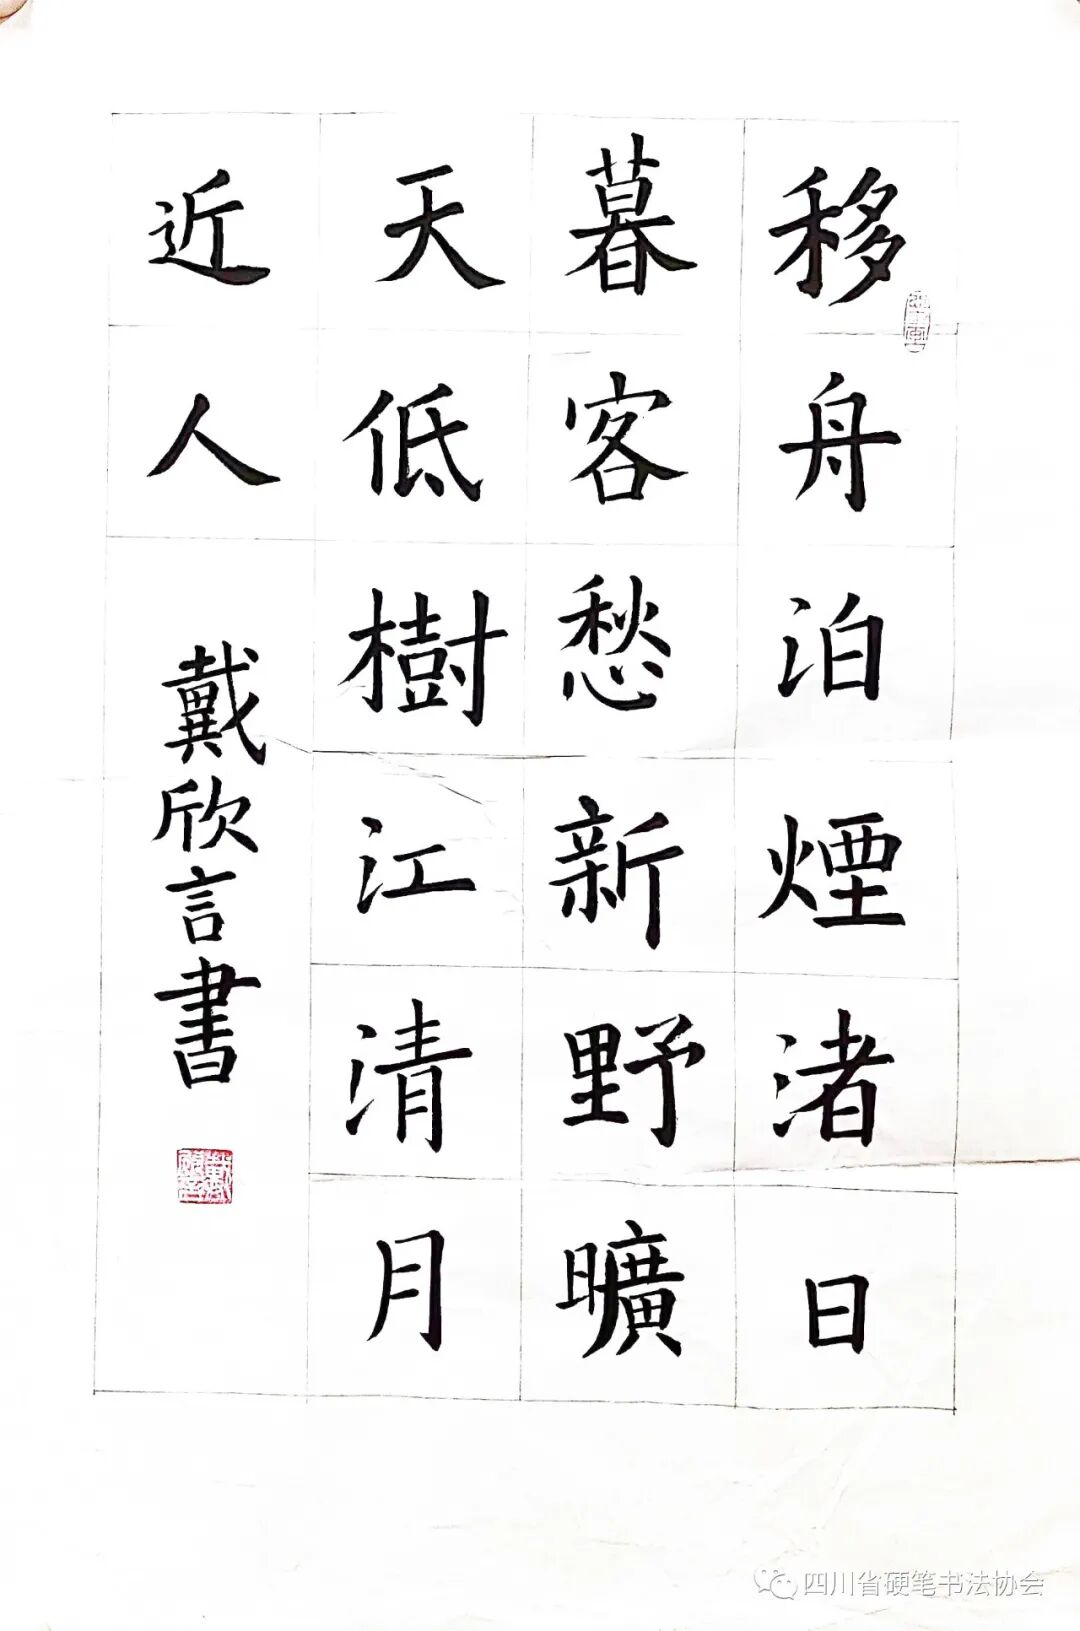 移舟泊煙渚日
暮客愁新野曠
天低樹江清月
近人
戴欣言書
四川省硬笔书法协会